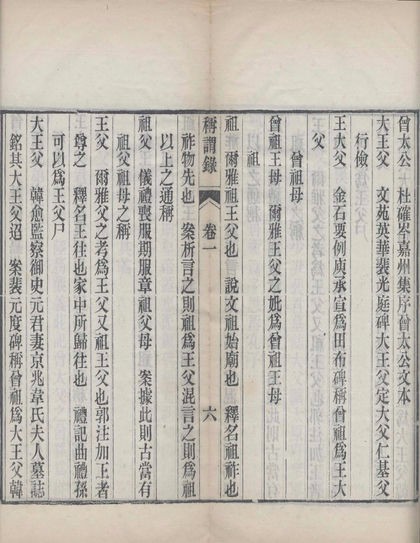 曾太公 杜確岑嘉州集序曾太公文本
大王父 文苑英華裴光庭碑大王父定大父仁基父
行儉
王大父 金石要例庾承宣爲田布碑稱曾祖爲王大
父
曾祖母
曾祖王母 爾雅王父之妣爲曾祖王母
祖
祖 爾雅祖王父也 說文祖始廟也 釋名祖祚也
稱謂錄 卷一 六
祚物先也 案析言之則祖爲王父混言之則凡爲
以上之通稱
祖父 儀禮喪服期服章祖父母 案據此則古當有
祖父祖父母之稱
王父 爾雅父之考爲王父又祖王父也郭注加王者
尊之 釋名王暀也家中所歸暀也 禮記曲禮孫
可以爲王父尸
大王父 韓愈監察御史元君妻京兆韋氏夫人墓誌
銘其大王父迢 案裴元度碑稱曾祖爲大王父韓